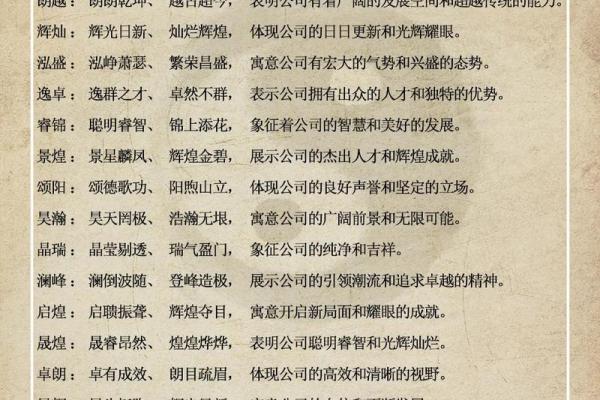 朗越：朗朗乾坤、越古超今，表明公司有着广阔的发展空间和超越传统的能力。
辉灿：辉光日新、灿烂辉煌，体现公司的日日更新和光辉耀眼。
泓盛：泓峥萧瑟、繁荣昌盛，寓意公司有宏大的气势和兴盛的态势。
逸卓：逸群之才、卓然不群，表示公司拥有出众的人才和独特的优势。
睿锦：聪明睿智、锦上添花，象征着公司的智慧和美好的发展。
景煌：景星麟凤、辉煌金碧，展示公司的杰出人才和辉煌成就。
颂阳：颂德歌功、阳煦山立，体现公司的良好声誉和坚定的立场。
昊瀚：昊天罔极、浩瀚无垠，寓意公司的广阔前景和无限可能。
晶瑞：晶莹剔透、瑞气盈门，象征公司的纯净和吉祥。
澜峰：澜倒波随、登峰造极，展示公司的引领潮流和追求卓越的精神。
启煌：启聩振聋、辉煌夺目，寓意开启新局面和耀眼的成就。
晟煌：晟睿昂然、煌煌烨烨，表明公司聪明睿智和光辉灿烂。
卓朗：卓有成效、朗目疏眉，体现公司的高效和清晰的视野。